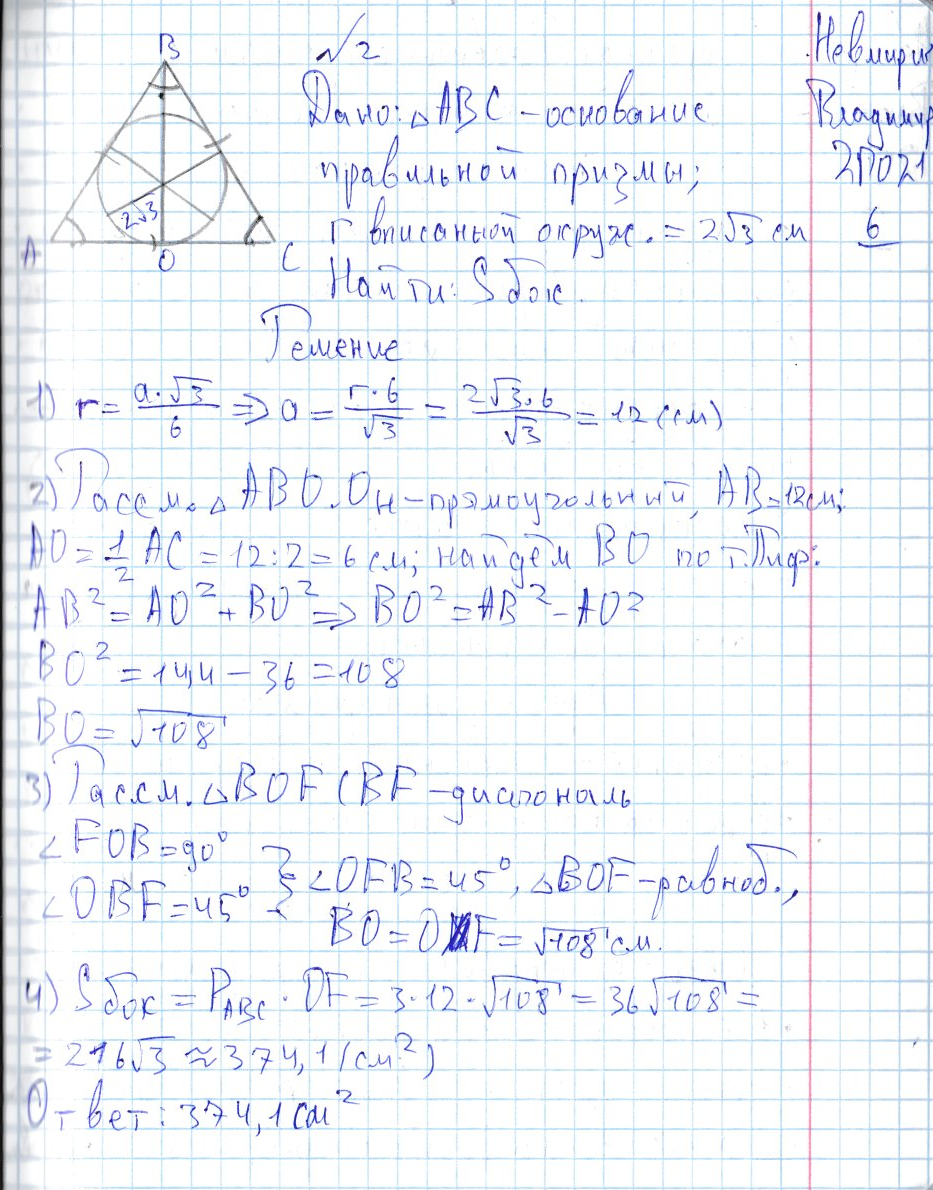 √2
Невмирич
Дано: △ABC - основание
Владимир
правильной призмы;
2П021
r вписаный окруж. = 2√3 см
6
Найти: Sбок.
B
2√3
A
O
C
Решение
1) r = a·√3/6 => a = r·6/√3 = 2√3·6/√3 = 12 (см)
2) Рассм. △ABO. Он - прямоугольний, AB = 12см;
AO = 1/2 AC = 12:2 = 6 см; найдём BO по т.Пиф:
AB² = AO² + BO² => BO² = AB² - AO²
BO² = 144 - 36 = 108
BO = √108
3) Рассм. △BOF (BF - диагональ
∠FOB = 90°
∠OBF = 45° } ∠OFB = 45°, △BOF - равноб.,
BO = OF = √108 см.
4) Sбок = P_ABC · OF = 3·12·√108 = 36√108 =
= 216√3 ≈ 374,1 (см²)
Ответ: 374,1 см²